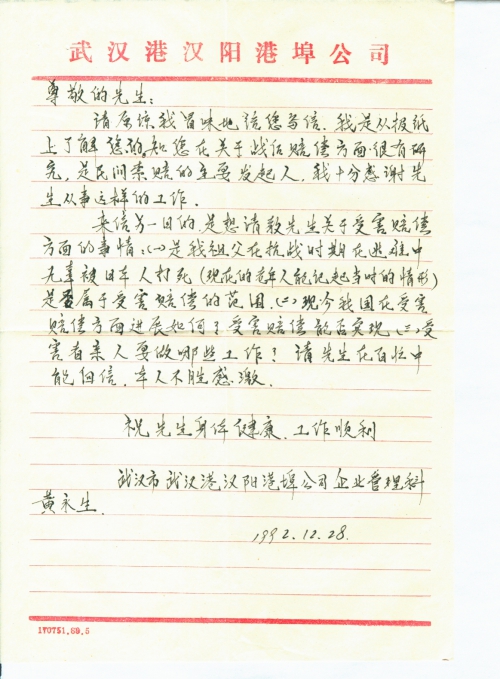 武汉港汉阳港埠公司
尊敬的先生：
请原惊我冒味地给您写信．我是从报纸
上了解您的．知您在关于战任赔偿方面很有研
究，是民间索赔的主要发起人，我十分感谢先
生从事这样的工作．
来信另一目的是想请教先生关于受害赔偿
方面的事情：(一)是我祖父在抗战时期在逃难中
无辜被日军人打死（现在的老年人能记起当时的情形）
是否属于受害赔偿的范围．(二)现今我国在受害
赔偿方面进展如何？受害赔偿能否实现．(三)受
害者亲人要做哪些工作？请先生在百忙中
能回信．本人不胜感激．
祝先生身体健康．工作顺利
武汉市武汉港汉阳港埠公司企业管理科
黄永生．
1992.12.28.
1Y0751.89.5